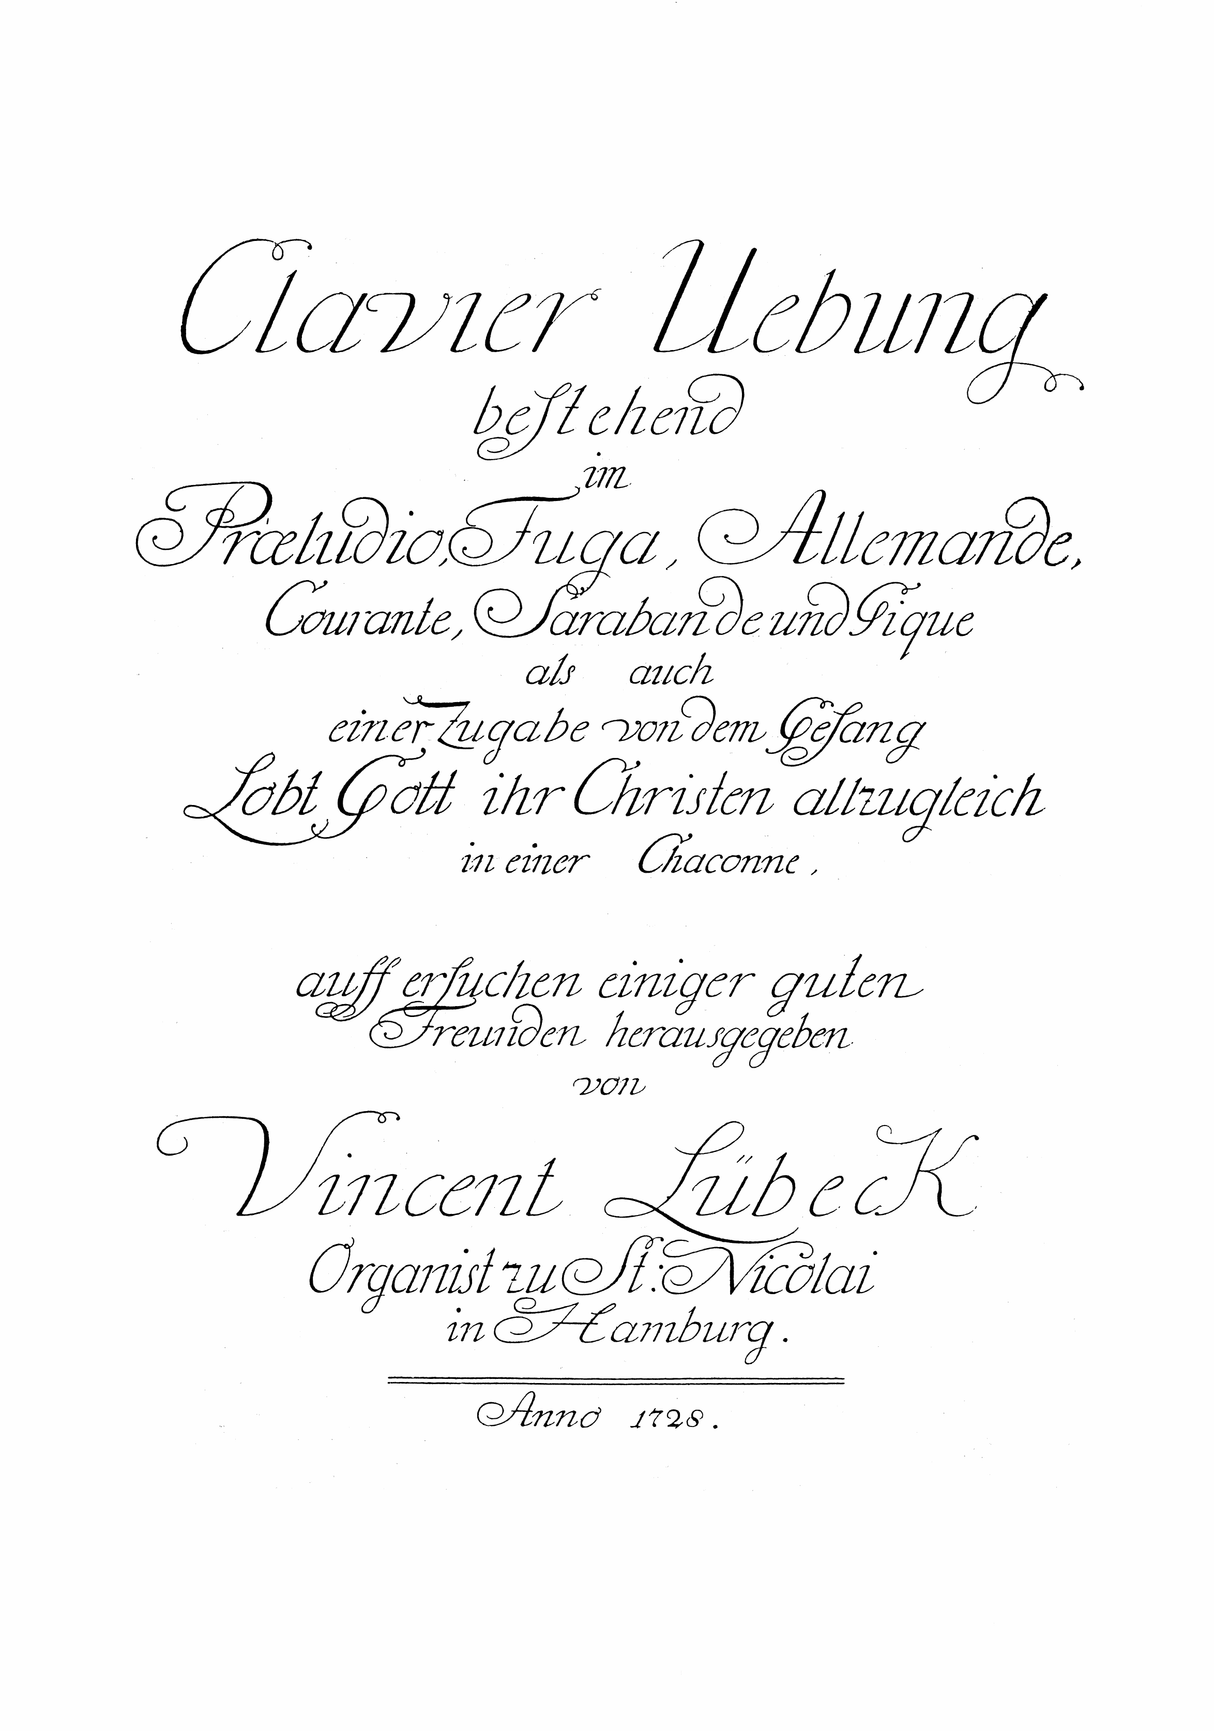 Clavier Uebung
beſtehend
im
Præludio, Fuga, Allemande,
Courante, Sarabande und Gique
als auch
einer Zugabe von dem Geſang
Lobt Gott ihr Christen allzugleich
in einer Chaconne,
auff erſuchen einiger guten
Freunden herausgegeben
von
Vincent LübecK
Organist zu St: Nicolai
in Hamburg.
Anno 1728.